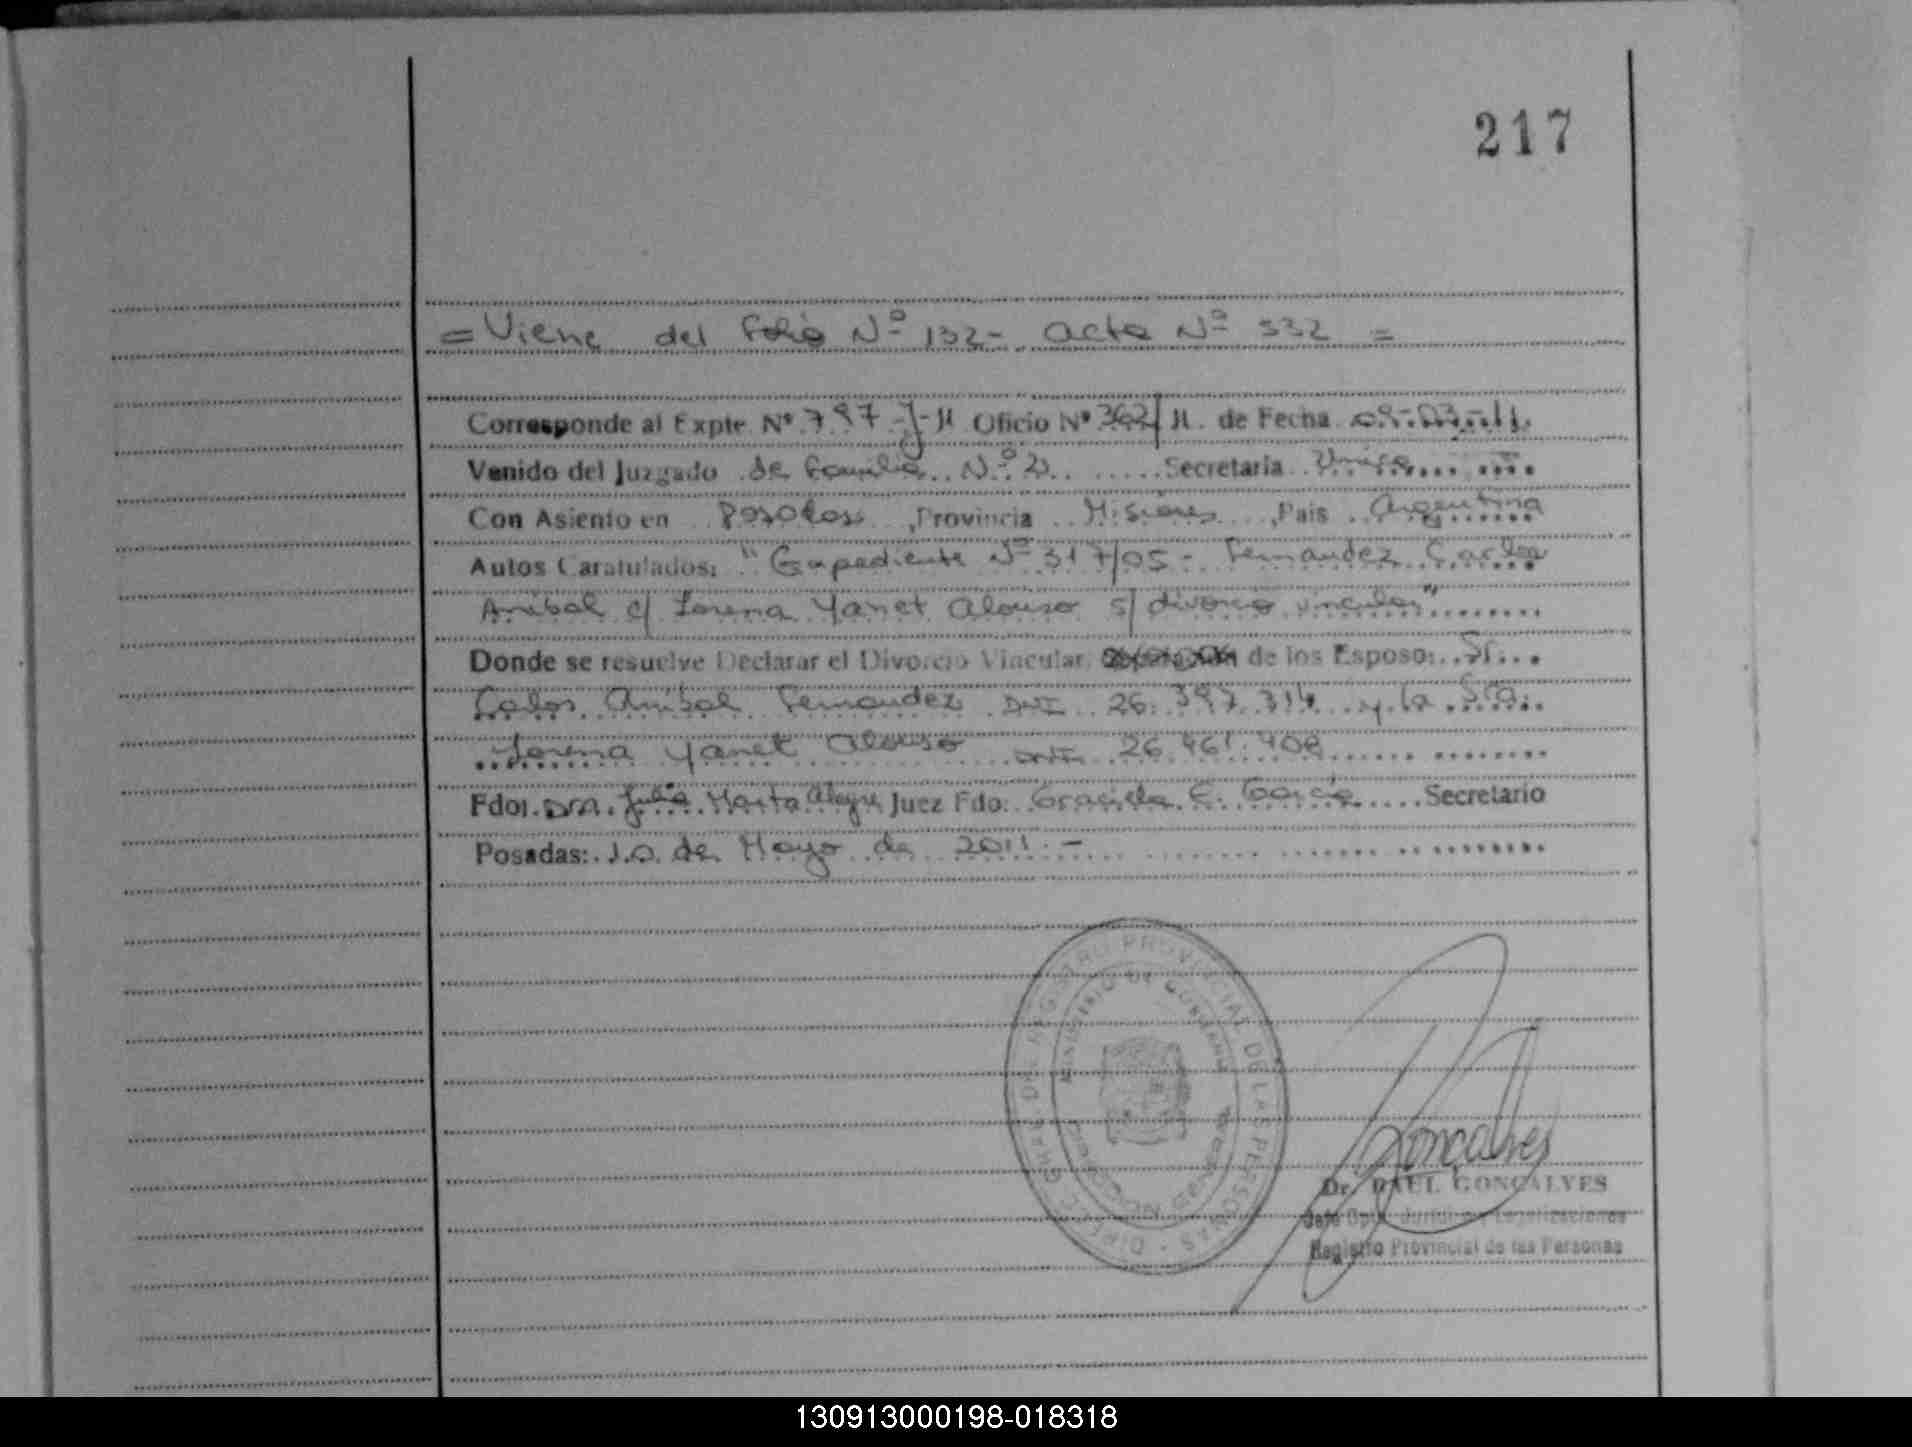 217
= Viene del folio Nº 132 - acta Nº 332 =
Corresponde al Expte. Nº 797-J-11 Oficio Nº 362/11. de Fecha 09-03-11.
Venido del Juzgado de Familia Nº 2 Secretaria Unica
Con Asiento en Posadas, Provincia Misiones, Pais Argentina
Autos Caratulados: "Expediente Nº 317/05 - Fernandez Carlos
Anibal c/ Lorena Yanet Alonso s/ divorcio vincular"
Donde se resuelve Declarar el Divorcio Vincular, de los Esposo: Sr.
Carlos Anibal Fernandez DNI 26.397.314 y la Sra.
Lorena Yanet Alonso DNI 26.461.908
Fdo: DRA. Julia Marta Alegre Juez Fdo: Graciela E. Garcia Secretario
Posadas: 10 de Mayo de 2011 -
DIRECC. GRAL. DEL REGISTRO PROVINCIAL DE LAS PERSONAS
MINISTERIO DE GOBIERNO
Gonçalves
Dr. RAUL GONÇALVES
Jefe Dpto. Legalizaciones
Registro Provincial de las Personas
130913000198-018318